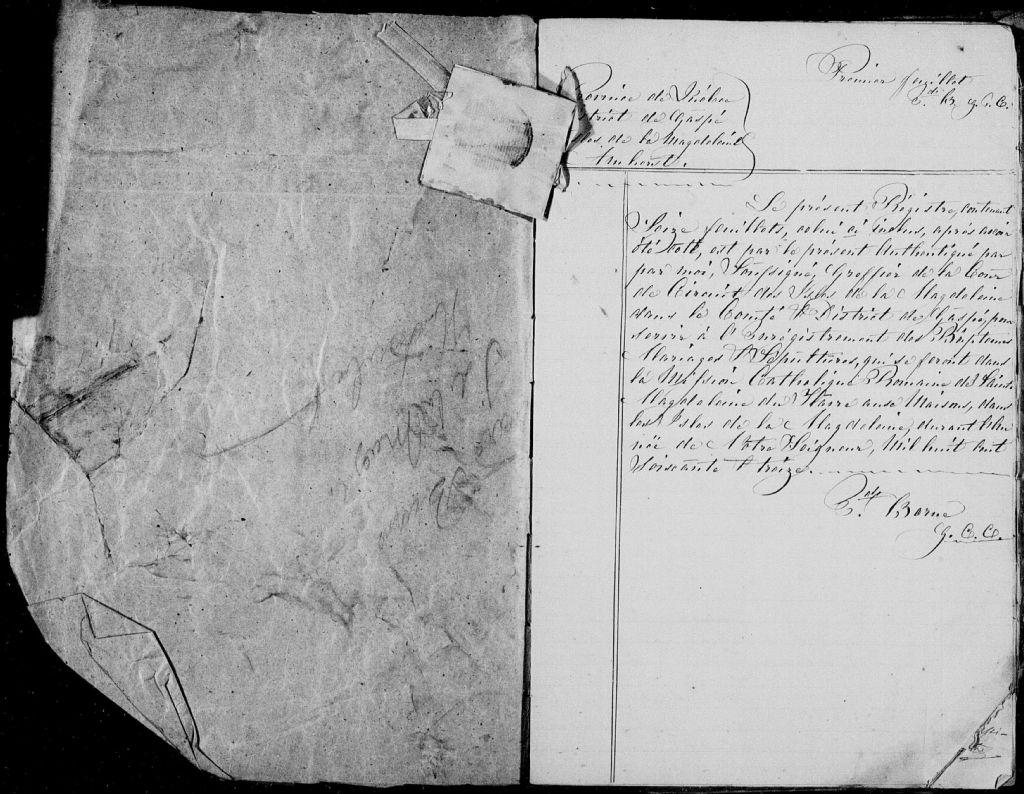 Premier feuillet
G. C. C.
Province de Québec
District de Gaspé
Isles de la Magdeleine
Amherst.
Le présent Régistre, contenant
Seize feuillets, celui ci inclus, après avoir
été Coté, est par le présent Authentiqué par
par moi, Soussigné, Greffier de la Cour
de Circuit des Isles de la Magdeleine
dans le Comté & District de Gaspé, pour
servir à l'Enrégistrement des Baptêmes
Mariages & Sépultures, qui se feront dans
la Mission Catholique Romaine de Sainte
Magdeleine du Havre aux Maisons, dans
les Isles de la Magdeleine, durant l'An
née de Notre Seigneur, Mil huit cent
Soixante & treize.
Ed. Borne
G. C. C.